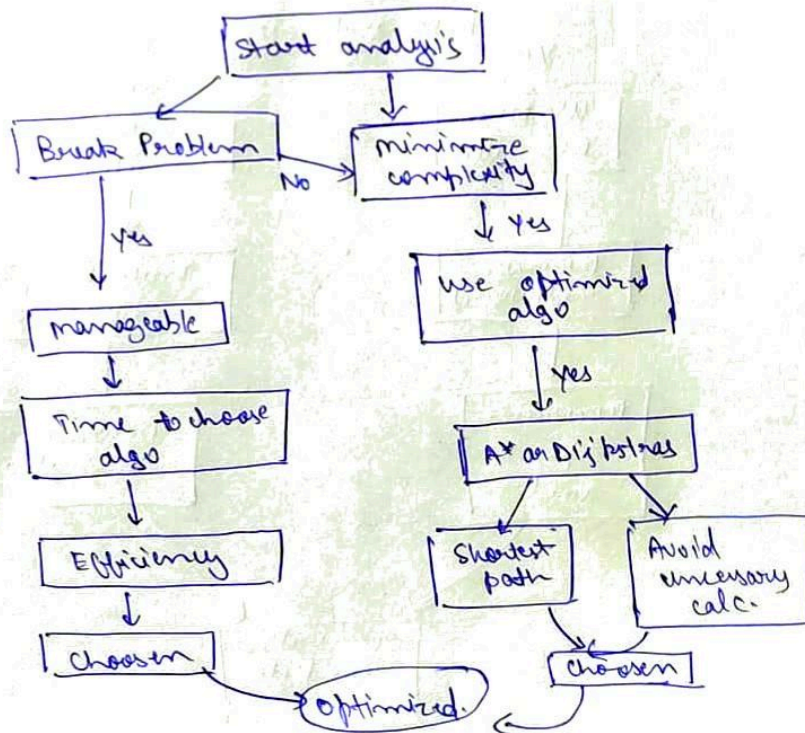 Start analysis
Break Problem
No
minimize
complexity
Yes
Yes
use optimized
algo
manageable
Yes
Time to choose
algo
A* or Dijkstras
Efficiency
Shortest
path
Avoid
unncessary
calc.
Choosen
Choosen
Optimized.